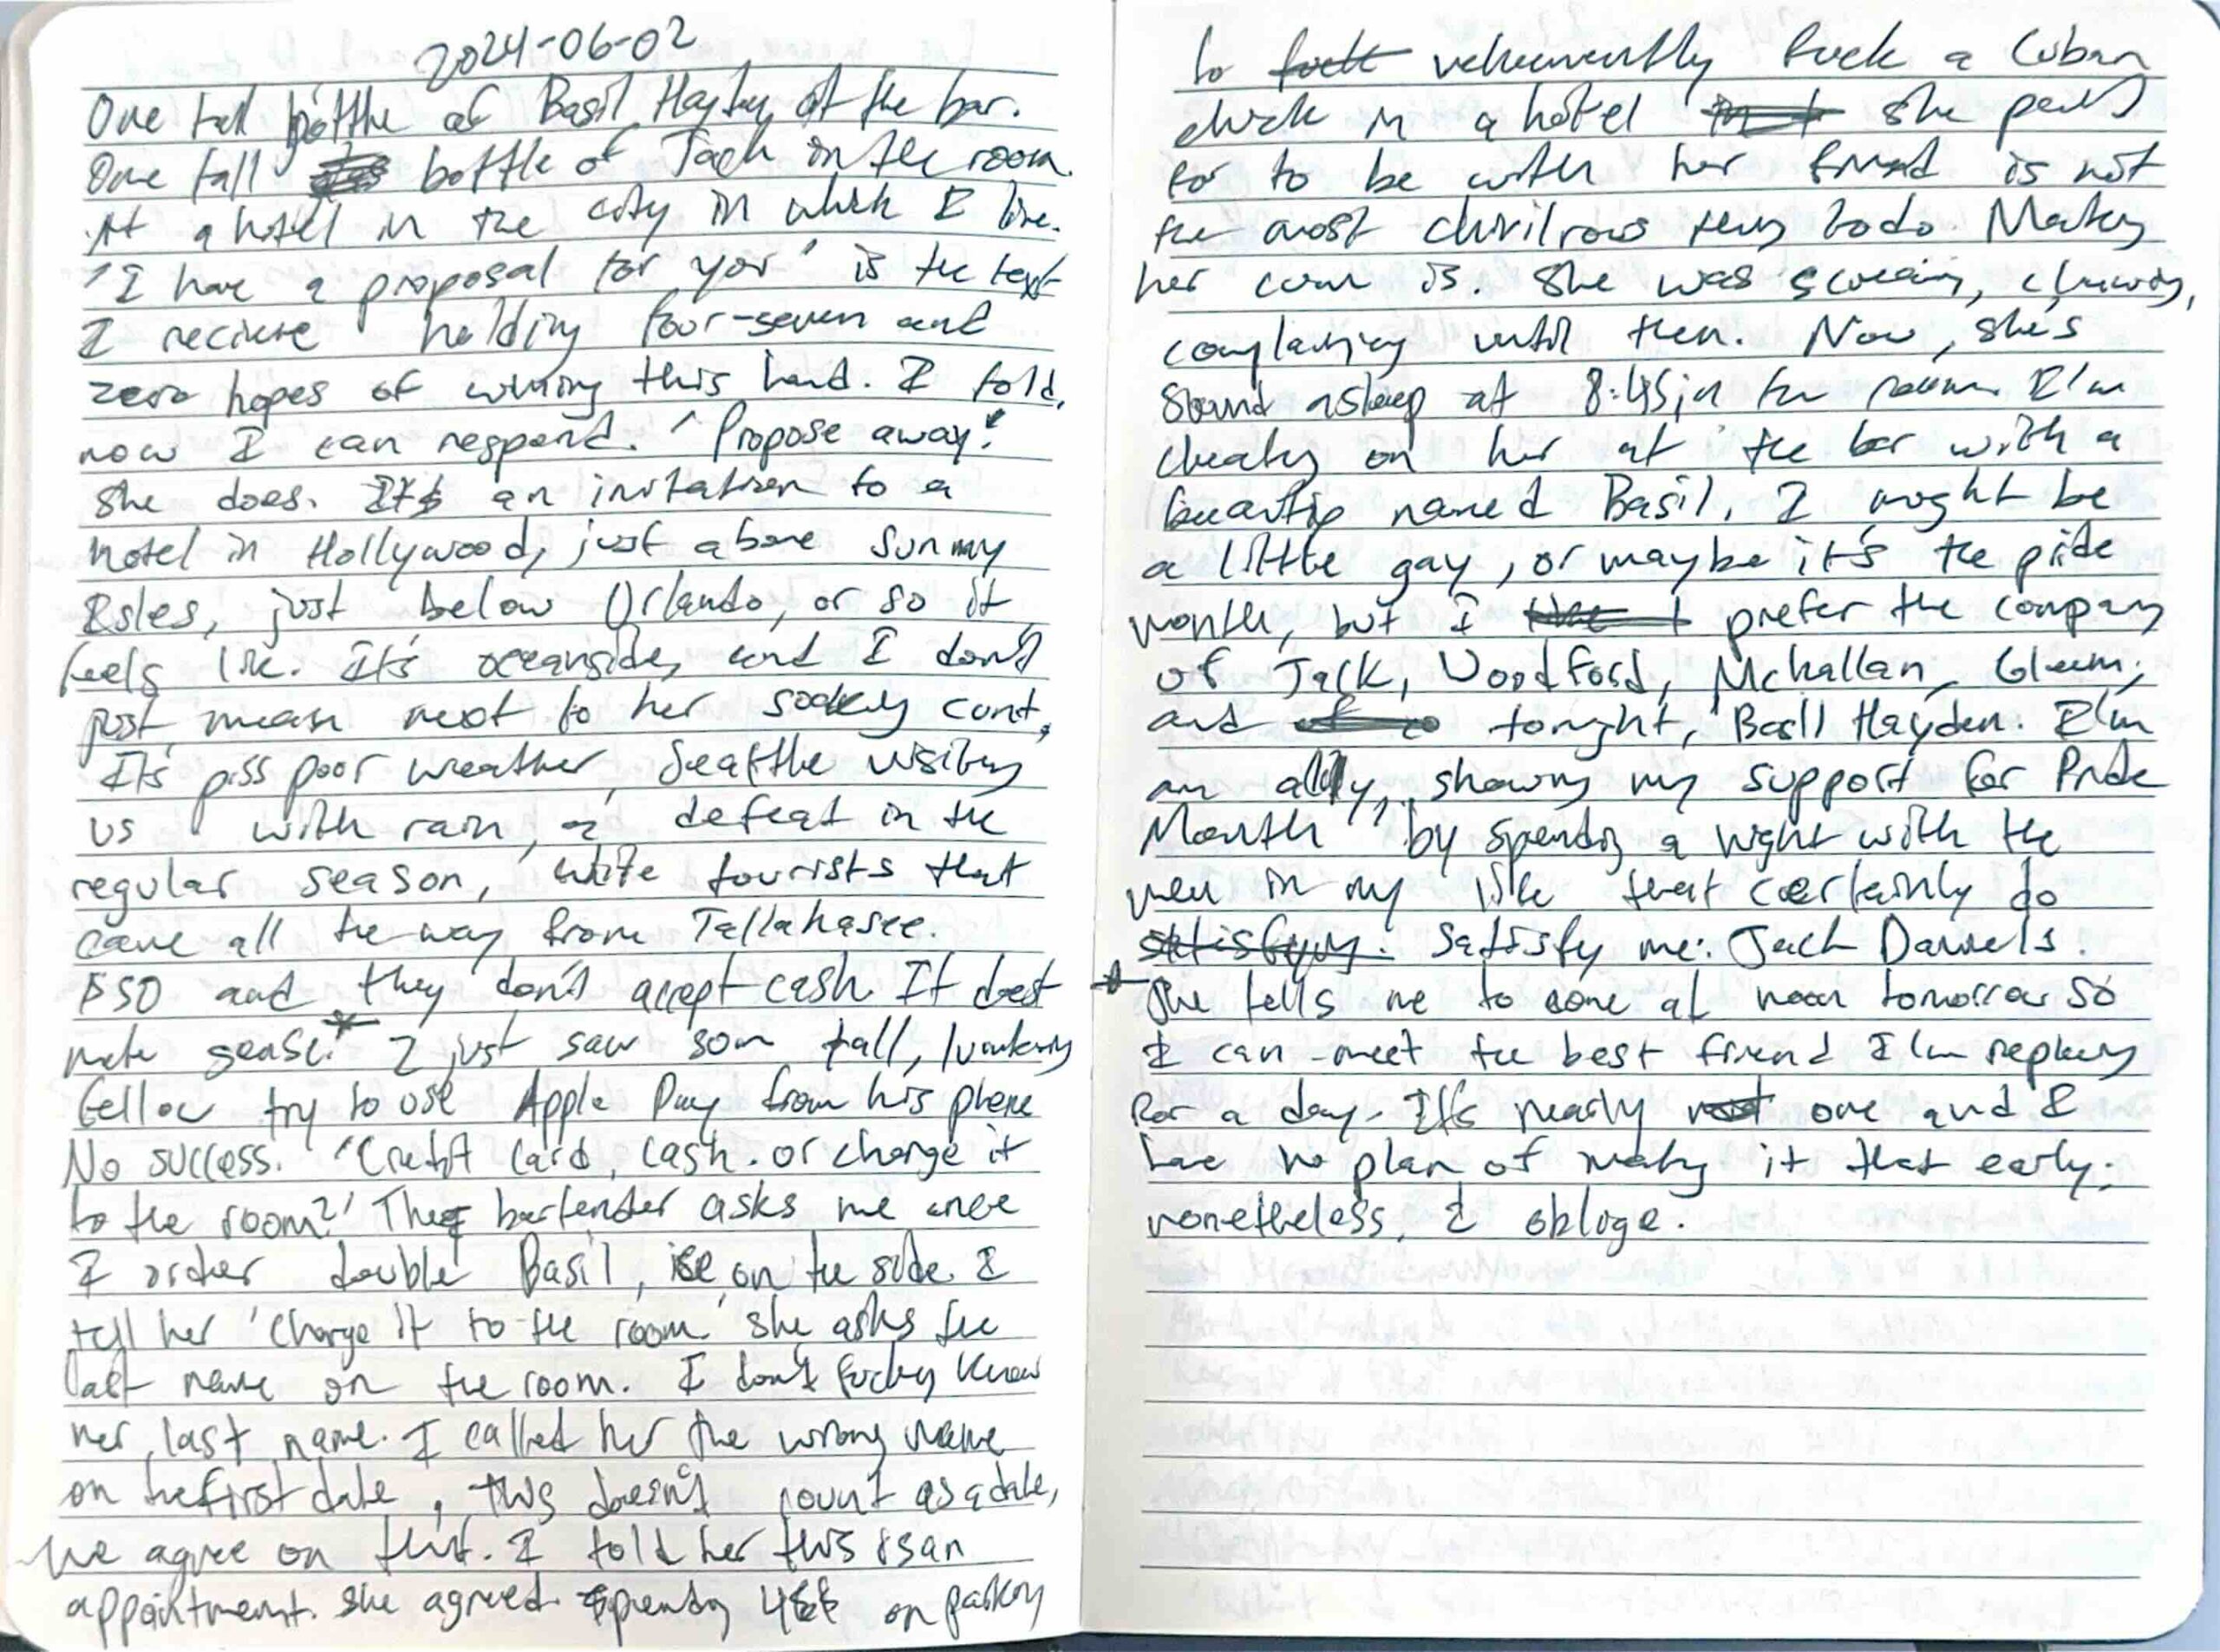 2024-06-02
One tall bottle of Basil Hayden at the bar.
One tall bottle of Jack in the room.
At a hotel in the city in which I live.
"I have a proposal for you" is the text
I recieve holding four-seven and
zero hopes of winning this hand. I fold,
now I can respond. "Propose away!"
she does. It's an invitation to a
hotel in Hollywood, just above Sunny
Isles, just below Orlando, or so it
feels like. It's oceanside, and I don't
just mean next to her cunt,
It's piss poor weather, Seattle visiting
us with rain, a defeat in the
regular season, white tourists that
came all the way from Tallahasee.
$50 and they don't accept cash It doest
make sense.* I just saw som tall,
fellow try to use Apple Pay from his phone
No success. "Credit card, cash. or charge it
to the room?" The bartender asks me once
I order double Basil, ice on the side. I
tell her "charge it to the room" she asks the
last name on the room. I don't fucking know
her last name. I called her the wrong name
on the first date, this doesn't count as a date,
we agree on that. I told her this is an
appointment. she agreed. spending on parking
to fuck vehemently fuck a Cuban
chick in a hotel she paid
for to be with her friend is not
the most chivilrous thing to do. Making
her cum is. She was
complaining until then. Now, she's
Sound asleep at 8:45 in the room. I'm
cheating on her at the bar with a
named Basil. I might be
a little gay, or maybe it's the pride
month, but I prefer the company
of Jack, Woodford, Mchallan, Glenn,
and tonight, Basil Hayden. I'm
an ally, showing my support for Pride
Month by spending a night with the
men in my life that certainly do
satisfying. satisfy me: Jack Daniels.
* She tells me to come at noon tomorrow so
I can meet the best friend I'm replacing
for a day. It's nearly one and I
have no plan of making it that early;
nonetheless, I obloge.